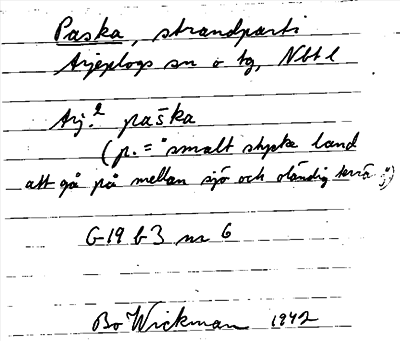 Paska, strandparti
Arjeplogs sn o tg, Nbtl
Arj.² paška
(p. = "smalt stycke land
att gå på mellan sjö och oländig terrä
G 19 b 3 nr 6
Bo Wickman 1942